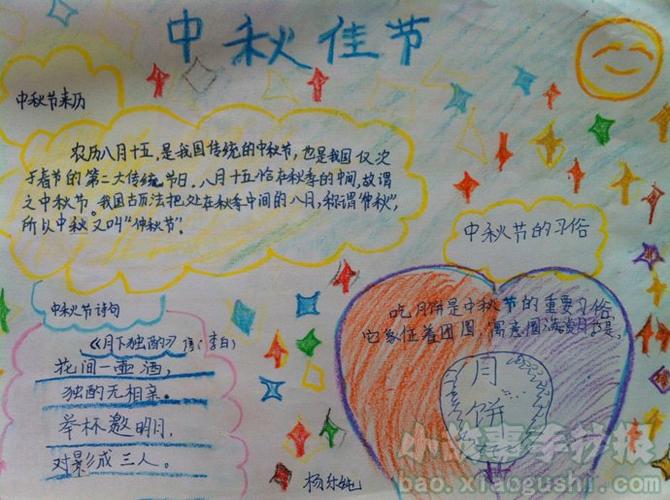 中秋佳节
中秋节来历
农历八月十五,是我国传统的中秋节,也是我国仅次
于春节的第二大传统节日。八月十五恰在秋季的中间,故谓
之中秋节。我国古历法把处在秋季中间的八月,称谓“仲秋”,
所以中秋又叫“仲秋节”。
中秋节的习俗
吃月饼是中秋节的重要习俗,
它象征着团圆,寓意圆满
月
饼
中秋节诗句
《月下独酌》 唐(李白)
花间一壶酒,
独酌无相亲。
举杯邀明月,
对影成三人。
杨乐
小故事手抄报
bao.xiaogushi.com